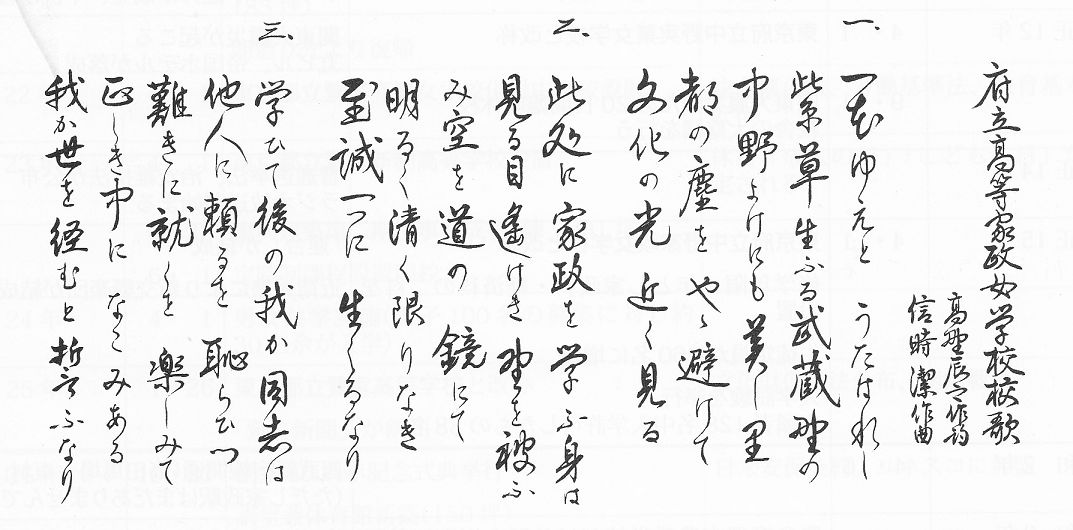 府立高等家政女学校校歌
高野辰之作詞
信時潔作曲
一、
一もとゆゑと うたはれし
紫草生ふる武蔵野の
中野よけにも美里
都の塵をやゝ避けて
文化の光 近く見る
二、
此処に家政を学ふ身は
見る目遙けき野を被ふ
み空を道の 鏡にて
明るく清く限りなき
至誠一つに 生くるなり
三、
学ひて後の我か同志は
他人に頼るを 恥らひつ
難きに就を 楽しみて
正しき中に なこみある
我か世を経むと誓ふなり